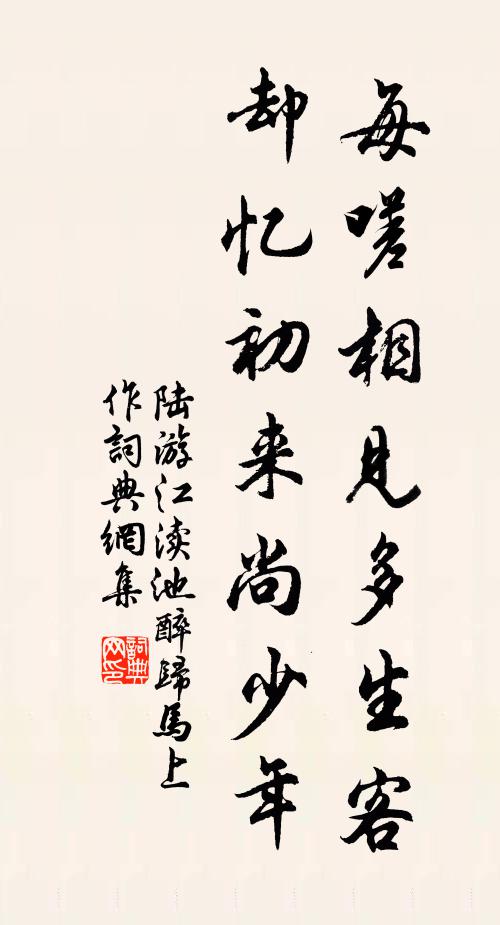 每嗟相见多生客
却忆初来尚少年
陆游江渎池醉歸馬上
作詞典網集
詞典网印